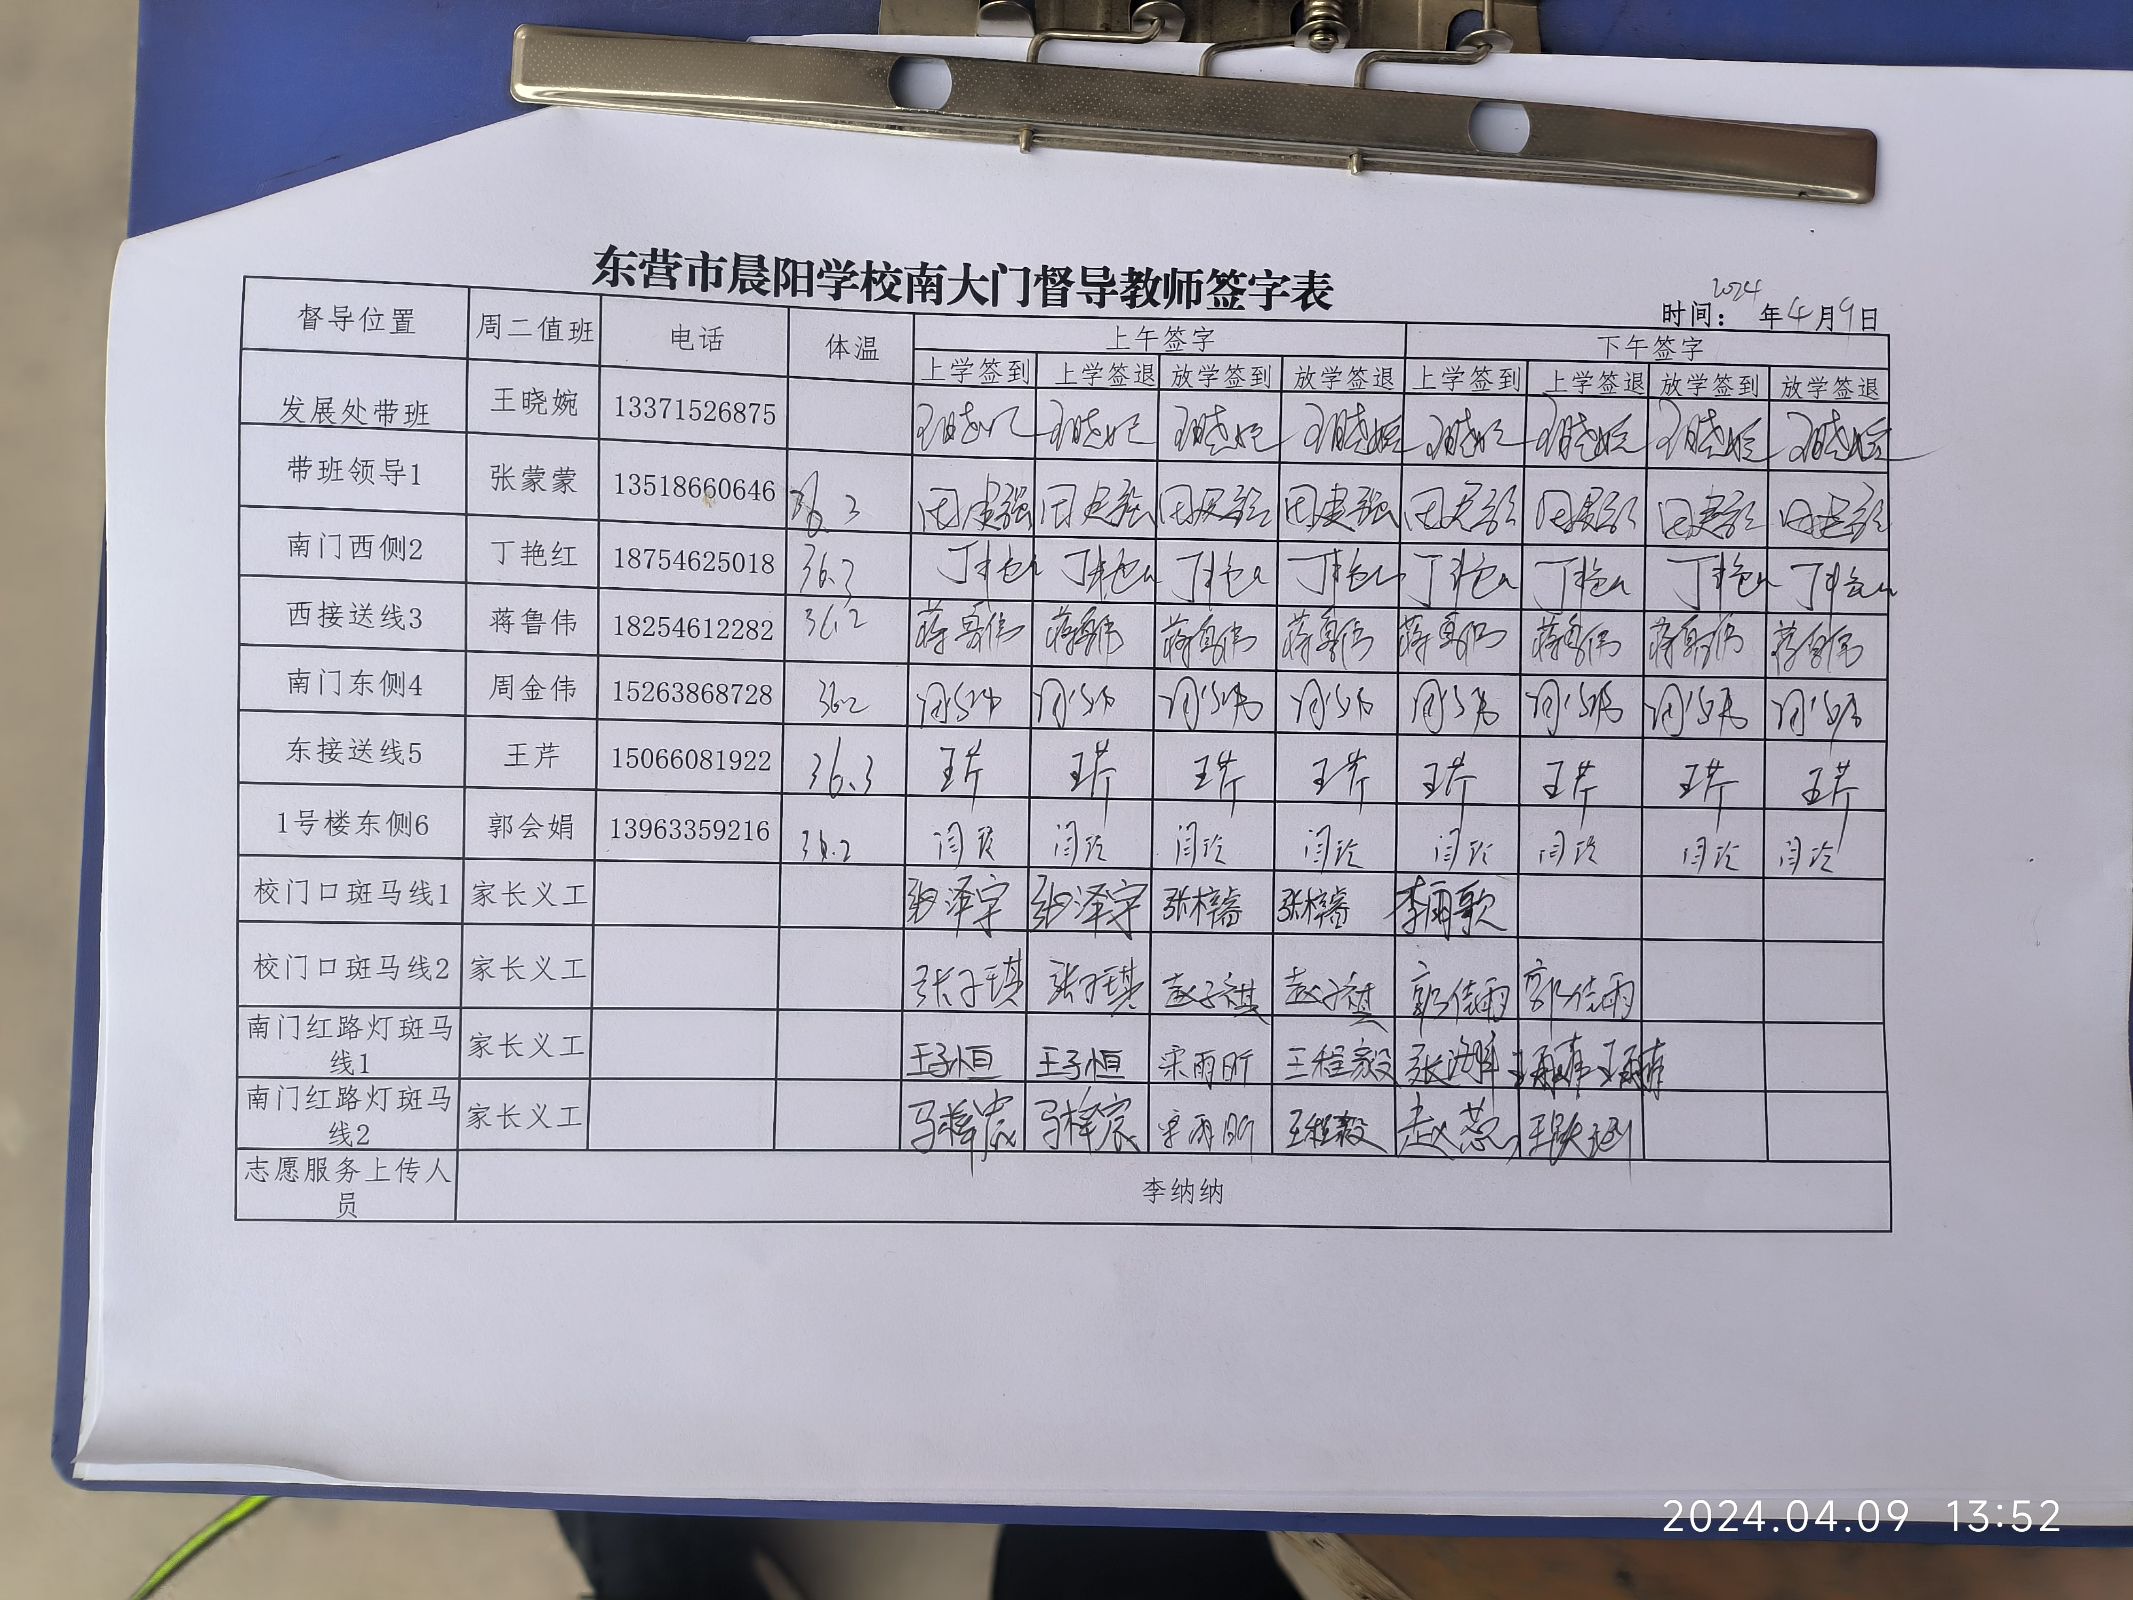 东营市晨阳学校南大门督导教师签字表
时间： 2024 年 4 月 9 日
督导位置 周二值班 电话 体温 上午签字 下午签字
上学签到 上学签退 放学签到 放学签退 上学签到 上学签退 放学签到 放学签退
发展处带班 王晓婉 13371526875 王晓婉 王晓婉 王晓婉 王晓婉 王晓婉 王晓婉 王晓婉 王晓婉
带班领导1 张蒙蒙 13518660646 36.3 田建强 田建强 田建强 田建强 田建强 田建强 田建强 田建强
南门西侧2 丁艳红 18754625018 36.3 丁艳红 丁艳红 丁艳红 丁艳红 丁艳红 丁艳红 丁艳红 丁艳红
西接送线3 蒋鲁伟 18254612282 36.2 蒋鲁伟 蒋鲁伟 蒋鲁伟 蒋鲁伟 蒋鲁伟 蒋鲁伟 蒋鲁伟 蒋鲁伟
南门东侧4 周金伟 15263868728 36.2 周金伟 周金伟 周金伟 周金伟 周金伟 周金伟 周金伟 周金伟
东接送线5 王芹 15066081922 36.3 王芹 王芹 王芹 王芹 王芹 王芹 王芹 王芹
1号楼东侧6 郭会娟 13963359216 36.2 闫玲 闫玲 闫玲 闫玲 闫玲 闫玲 闫玲 闫玲
校门口斑马线1 家长义工 张梓睿 张梓睿 李雨歌
校门口斑马线2 家长义工 张子琪 张子琪 赵子祺 赵子祺 郭佳雨 郭佳雨
南门红路灯斑马 家长义工 王子恒 王子恒 王程毅
线1
南门红路灯斑马 家长义工 马梓宸 马梓宸 王程毅 赵蕊
线2
志愿服务上传人 李纳纳
员
2024.04.09 13:52